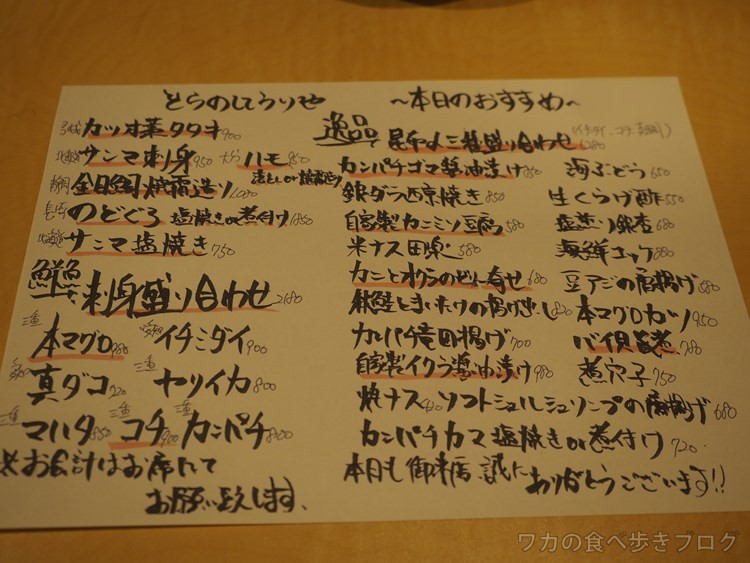 とらのしてうりせ
~本日のおすすめ~
カツオ藁タタキ 900
サンマ刺身 950 ハモ 950
金目鯛焼霜造り
のどぐろ 塩焼きor煮付け 1850
サンマ塩焼き 750
鮮魚
刺身盛り合わせ 2180
三重
本マグロ 980 イチミダイ 900
真ダコ 720 ヤリイカ 800
三重
マハタ コチ カンパチ
※お会計はお席にて
お願い致します。
逸品
昆布〆三種盛り合わせ
カンパチゴマ醤油漬け 海ぶどう 650
銀ダラ西京焼き 850 生くらげ酢 550
自家製カニミソ豆腐 580 塩煎り銀杏 680
米ナス田楽 580 海鮮ユッケ
カニとオクラのせん寄せ 680 豆アジの唐揚げ
秋鮭ときのたけの揚げ出し 820 本マグロカツ 950
カンパチ竜田揚げ 700 バイ貝旨煮 780
自家製イクラ醤油漬け 980 煮穴子 750
焼ナス ソフトシェルシュリンプの唐揚げ 680
カンパチカマ塩焼きor煮付け 720
本日も御来店、誠に
ありがとうございます!!
ワカの食べ歩きブログ